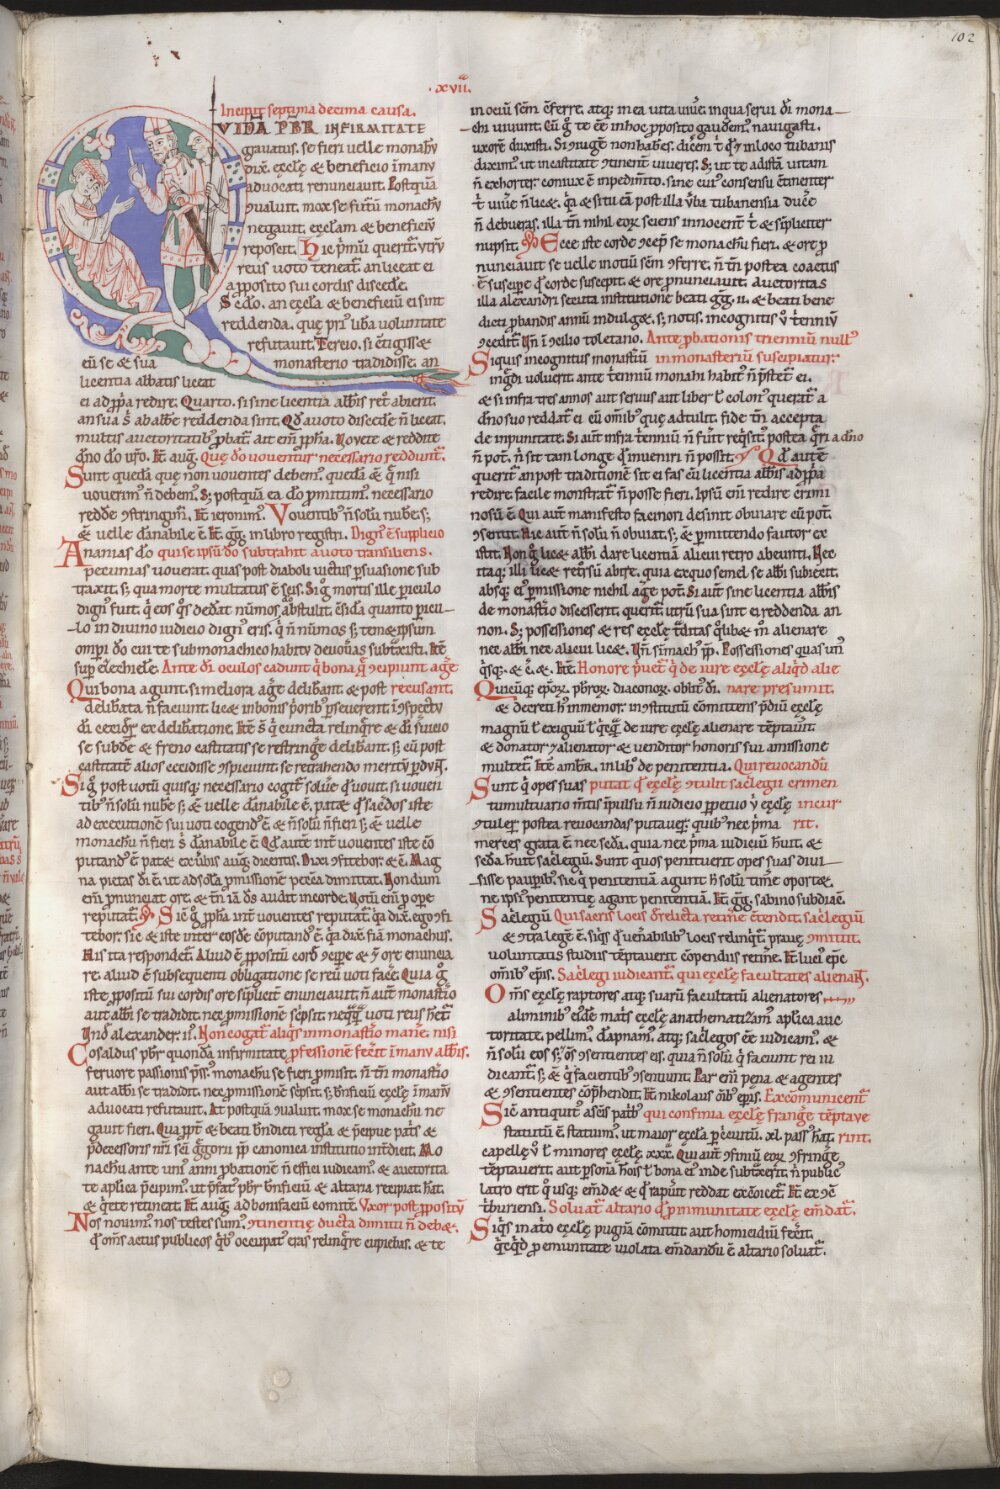 102
·xvii·
Incipit septima decima causa.
QVIDA PBR INFIRMITATE
gͣuatus. se fieri uelle monachū
dix̄. eccłę & beneficio ī manu
aduocati renunciauit. Postquā
ꝯualuit. mox se futurū monachū
negauit. eccłam & beneficiū
reposcit. Hic p̄mū querit̄. utrū
reus uoto teneat̄. an liceat ei
a p̄posito sui cordis discedere.
Scďo. an eccła & beneficiū ei sint
reddenda. que pri⁹ libā uoluntate
refutauit. Tercio. si ꝯtigisse
eū se & sua monasterio tradidisse. an
licentia abbatis liceat
ei ad pp̄a redire. Quarto. si sine licentia abbis recͭ abierit.
an sua s̄ ab abbe reddenda sint. Qđ a uoto discedere n̄ liceat.
multis auctoritatibꝫ probat̄. ait em̄ ppha. Vouete & reddite
dn̄o dō uro. Itē auḡ. Que dō uouentur necessario reddunt̄.
Sunt quedā que non uouentes debem⁹. quedā & q̄ nisi
uouerim⁹ n̄ debem⁹. sꝫ postquā ea dō p̄mittim⁹. necessario
reddere ꝯstringim̄. Itē ieronim⁹. Vouentibꝫ n̄ solū nubere. sꝫ
& uelle dānabile ē. Itē gḡ in libro registri. Dign⁹ ē supplicio
Ananias dō qui se ipsū dō subtrahit a uoto transiliens.
pecunias uouerat. quas post diaboli uictus p̄suasione sub
traxit. sꝫ qua morte multatus ē scis. Si g̊ mortis ille periculo
dign⁹ fuit. q̄ eos qͦs dederat nūmos abstulit. ꝯsida quanto pericu
lo in diuino iudicio dign⁹ eris. q̄ n̄ nūmos sꝫ temetipsum
omp̄i dō cui te sub monachico habitu deuoueras subtraxisti. Itē
sup ezechiele. Ante dī oculos cadunt q̄ bona. q̄ ꝯcipiunt agere
Qui bona agunt. si meliora agere deliberant. & post recusant.
deliberata n̄ faciunt. licet in bonis p̄oribꝫ perseuerent. ī ꝯspectu
dī cecider̄ ex deliberatione. Itē s̄ q̄ cuncta relinquere & dī seruicio
se subdere & freno castitatis se restringere deliberant. sꝫ cū post
castitatē alios cecidisse ꝯspiciunt. se retrahendo meritū perdunt.
Si g̊ post uotū quisqꝫ necessario cogit̄ soluere qđ uouit. si uouen
tibꝫ n̄ solū nubere sꝫ & uelle dānabile ē. patet qđ sacdos iste
ad executionē sui uoti cogendꝰ ē. & n̄ solū n̄ fieri sꝫ & uelle
monachū n̄ fieri s̄ dānabile ē. Qđ autē inter uouentes iste cō
putandꝰ ē patet ex uerbis auḡ. dicentis. Dixi ꝯfitebor & c̄. Mag
na pietas dī ē. ut ad solā p̄missionē peccata dimittat. Nondum
em̄ p̄nunciat ore. & tn̄ iā ds audit in corde. Uotū em̄ p̄ ope
reputat̄. Sic g̊ ppha inter uouentes reputat̄. qa dix̄. ego ꝯfi
tebor. sic & iste inter eosdē cōputandꝰ ē. qa dix̄. fiā monachus.
His ita respondet̄. Aliud ē ppositū corde ꝯcipere & ore enuncia
re. aliud ē subsequenti obligatione se reū uoti facere. Quia g̊
iste ppositū sui cordis ore simplicit̄ enunciauit. n̄ autē monastio
aut abbi se tradidit. nec p̄missionē scripsit. neq̄qꝫ uoti reus habet̄
Und̄ alexander. ii. Non cogat̄ aliqͥs in monast̄io manere. nisi
Cosaldus pbr quondā infirmitate. p̄fessionē fecerit ī manu abbis.
feruore passionis p̄ss⁹. monachū se fieri p̄misit. n̄ tn̄ monastio
aut abbi se tradidit. nec p̄missionē scripsit. sꝫ bn̄ficiū eccłę ī manu
aduocati refutauit. At postquā ꝯualuit. mox se monachū ne
gauit fieri. Qua ppt̄ & beati bn̄dicti regla & p̄cipue patris &
p̄decessoris nr̄i sc̄i ḡgorii pp̄ canonica institutio interdicit. Mo
nachū ante uni⁹ anni pbationē n̄ effici iudicam⁹. & auctorita
te aplica p̄cipim⁹. ut p̄fat⁹ pbr bn̄ficiū & altaria recipiat. hat̄.
& qͥete retineat. Itē auḡ. ad bonifaciū comitē. Uxor post ppositū
Nos nouim⁹. nos testes sum⁹. ꝯtinentię ducta dimitti n̄ debet.
qđ om̄s actus publicos qͥbꝫ occupat⁹ eras relinquere cupiebas. & te
in ociū sc̄m ꝯferre. atqꝫ in ea uita uiuere. in qua serui dī mona
chi uiuunt. Cū g̊ te eē in hoc pposito gauderem⁹. nauigasti.
uxorē duxisti. Si ꝯiugē non habes. dicerem tͥ qđ & in loco tubunis
diximꝰ. ut in castitate ꝯtinenti uiueres. Sꝫ ut te ad istā uitam
n̄ exhorter. coniux ē inpedim̄to. sine cui⁹ consensu ꝯtinenter
tͥ uiuere n̄ licet. qa & si tu eā post illa uerba tubunensia ducere
n̄ debueras. illa tn̄ nihil eoꝝ sciens innocent̄ tͥ & simpliciter
nupsit. Ecce iste corde ꝯcepit se monachū fieri. & ore p̄
nunciauit se uelle in ociū sc̄m ꝯferre. n̄ tn̄ postea coactus
ē suscipere qđ corde suscepit. & ore p̄nunciauit. auctoritas
illa alexandri secuta institutione beati gḡ. ii. & beati bene
dicti pbandis annū indulget. sꝫ notis. incognitis ū trienniū
ꝯcedit̄. Un̄ ī ꝯcilio toletano. Ante pbationis trienniū null⁹
Si quis incognitus monastiū in monasteriū suscipiatur.
ingredi uoluerit. ante trienniū monachi habit⁹ n̄ p̄stet̄ ei.
& si infra tres annos aut seruus aut liber ł colon⁹ querat̄. a
dn̄o suo reddat̄ ei cū om̄ibꝫ quę adtulit. fide tn̄ accepta
de inpunitate. Si autē infra trienniū n̄ fuit reqͥsit⁹. postea queri a dn̄o
n̄ pot̄. n̄ sit tam longe qđ inueniri n̄ possit. Qđ autē
querit̄ an post traditionē sit ei fas cū licentia abbis ad pp̄a
redire. facile monstrat̄ n̄ posse fieri. Ipsū em̄ redire crimi
nosū ē. Qui autē manifesto facinori desinit obuiare cū pot̄.
ꝯsentit. Hic autē n̄ solū n̄ obuiat. sꝫ & permittendo fautor ex
istit. Non g̊ licet abbi dare licentiā alicui retro abeunti. Nec
itaqꝫ illi licet retrorsū abire. quia ex quo semel se abbi subiecit.
absqꝫ ei⁹ permissione nichil agere pot̄. Si autē sine licentia abbis
de monastio discesserit. querit̄ utrū sua sint ei reddenda an
non. Sꝫ possessiones & res eccłę t̄ditas qͦlibet mͦ alienare
nec abbi nec alicui licet. Un̄ simach⁹ pp̄. Possessiones quas un⁹
qͥsqꝫ. & c̄. &. Itē. Honore p̄uet̄ qͥ de iure eccłę aliqͥd alie
Quicuqꝫ epōꝝ. pbroꝝ. diaconoꝝ. oblit⁹ dī. nare presumit.
& decreti h⁹ inmemor. in ꝯstitutū cōmittens p̄diū eccłę
magnū ł exiguū ł qͥcqͥd de iure eccłę alienare tēptauerit.
& donator & alienator & uenditor honoris sui amissione
multet̄. Itē ambr̄. in libro de penitentia. Qui reuocandū
Sunt qͥ opes suas putat qđ eccłę ꝯtulit sacrilegii crimen
tumultuario m̄tis īpulsu n̄ iudicio perpetuo ubi eccłę incur
ꝯtuler̄. postea reuocandas putauer̄. quibꝫ nec p̄ma rit.
merces grata ē nec seda. quia nec p̄ma iudiciū huit. &
seda huit sacrilegiū. Sunt quos penituerit opes suas diui
sisse pauperibꝫ. sic qͥ penitentiā agunt hͦ solū timere oportet.
ne ipsi⁹ penitentię agant penitentiā. Itē gḡ. sabino subdiac̄.
Sacrilegiū Qui sacris locis derelicta retinere ꝯtendit. sacrilegiū
& ꝯtra legē ē. siqͥs qđ uenerabilibꝫ locis relinquit̄. praue ꝯmittit.
uoluntatis studiis tēptauerit cōpendiis retinere. Itē luci⁹ epc̄
om̄ibꝫ epis. Sacrilegi iudicant̄. qui eccłę facultates alienant.
Om̄s eccłę raptores atqꝫ suarū facultatū alienatores
a liminibꝫ eiusdē matris eccłę anathematizam⁹ aplica auc
toritate. pellim⁹. dāpnam⁹. atqꝫ sacrilegos eē iudicam⁹. &
n̄ solū eos sꝫ oms̄ ꝯsentientes eis. quia n̄ solū qͥ faciunt rei iu
dicant̄. sꝫ & qͥ facientibꝫ ꝯsentiunt. Par em̄ pęna & agentes
& ꝯsentientes cōprehendit. Itē nikolaus oībꝫ epis. Excōmunicent̄
Sic antiquit⁹ a scīs patribꝫ qui confinia eccłę frangere temptaue
statutū ē. statuim⁹. ut maior eccła per circuitū. xl. pass⁹ hat̄. rint.
capellę ū ł minores eccłę. xxx. Qui autē ꝯfiniū eoꝝ ꝯfringere
tēptauerit. aut personā hois ł bona ei⁹ inde subtraxerit. n̄ public⁹
latro erit qͦusqꝫ emdet & qđ rapuit reddat excōicet̄. Itē ex ꝯc̄
triburiensi. Soluat̄ altario qđ p̄ inmunitate eccłę emdat̄.
Siqͥs in atrio eccłę pugnā cōmittit aut homicidiū fecerit.
qͥcqͥd p̄ emunitate uiolata emdandū ē altario soluat̄.